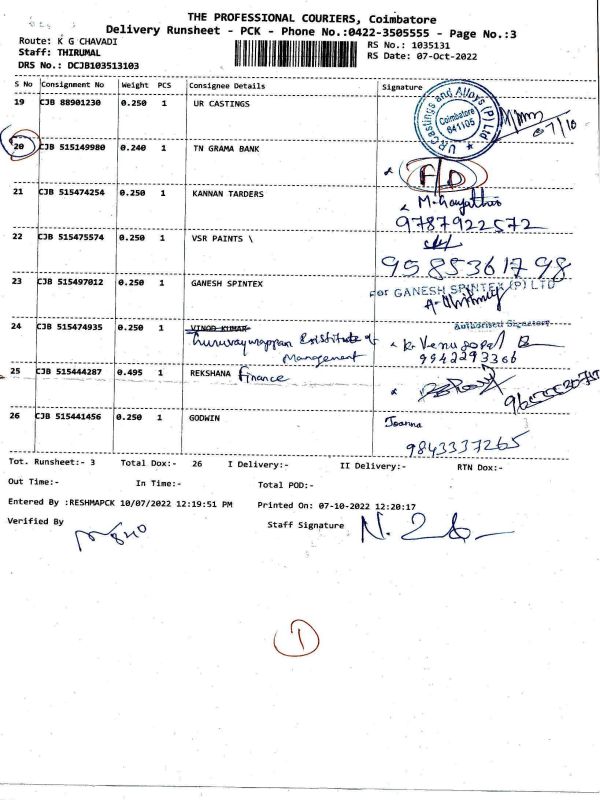 THE PROFESSIONAL COURIERS, Coimbatore
Delivery Runsheet - PCK - Phone No.:0422-3505555 - Page No.:3
Route: K G CHAVADI
RS No.: 1035131
Staff: THIRUMAL
RS Date: 07-Oct-2022
DRS No.: DCJB103513103
S No Consignment No Weight PCS Consignee Details Signature
19 CJB 88901230 0.250 1 UR CASTINGS
U.R Castings and Alloys (P) Ltd
Coimbatore
641105
7/10
20 CJB 515149980 0.240 1 TN GRAMA BANK
F/D
21 CJB 515474254 0.250 1 KANNAN TARDERS
M. Gayathri
9787922572
22 CJB 515475574 0.250 1 VSR PAINTS \
9585361798
23 CJB 515497012 0.250 1 GANESH SPINTEX
For GANESH SPINTEX (P) LTD
Authorised Signatory
24 CJB 515474935 0.250 1 VINOD KUMAR
Institute of
Management
K. Venugopal
9942293366
25 CJB 515444287 0.495 1 REKSHANA Finance
26 CJB 515441456 0.250 1 GODWIN
Joanna
9843337265
Tot. Runsheet:- 3 Total Dox:- 26 I Delivery:- II Delivery:- RTN Dox:-
Out Time:- In Time:- Total POD:-
Entered By :RESHMAPCK 10/07/2022 12:19:51 PM Printed On: 07-10-2022 12:20:17
Verified By
Staff Signature
1